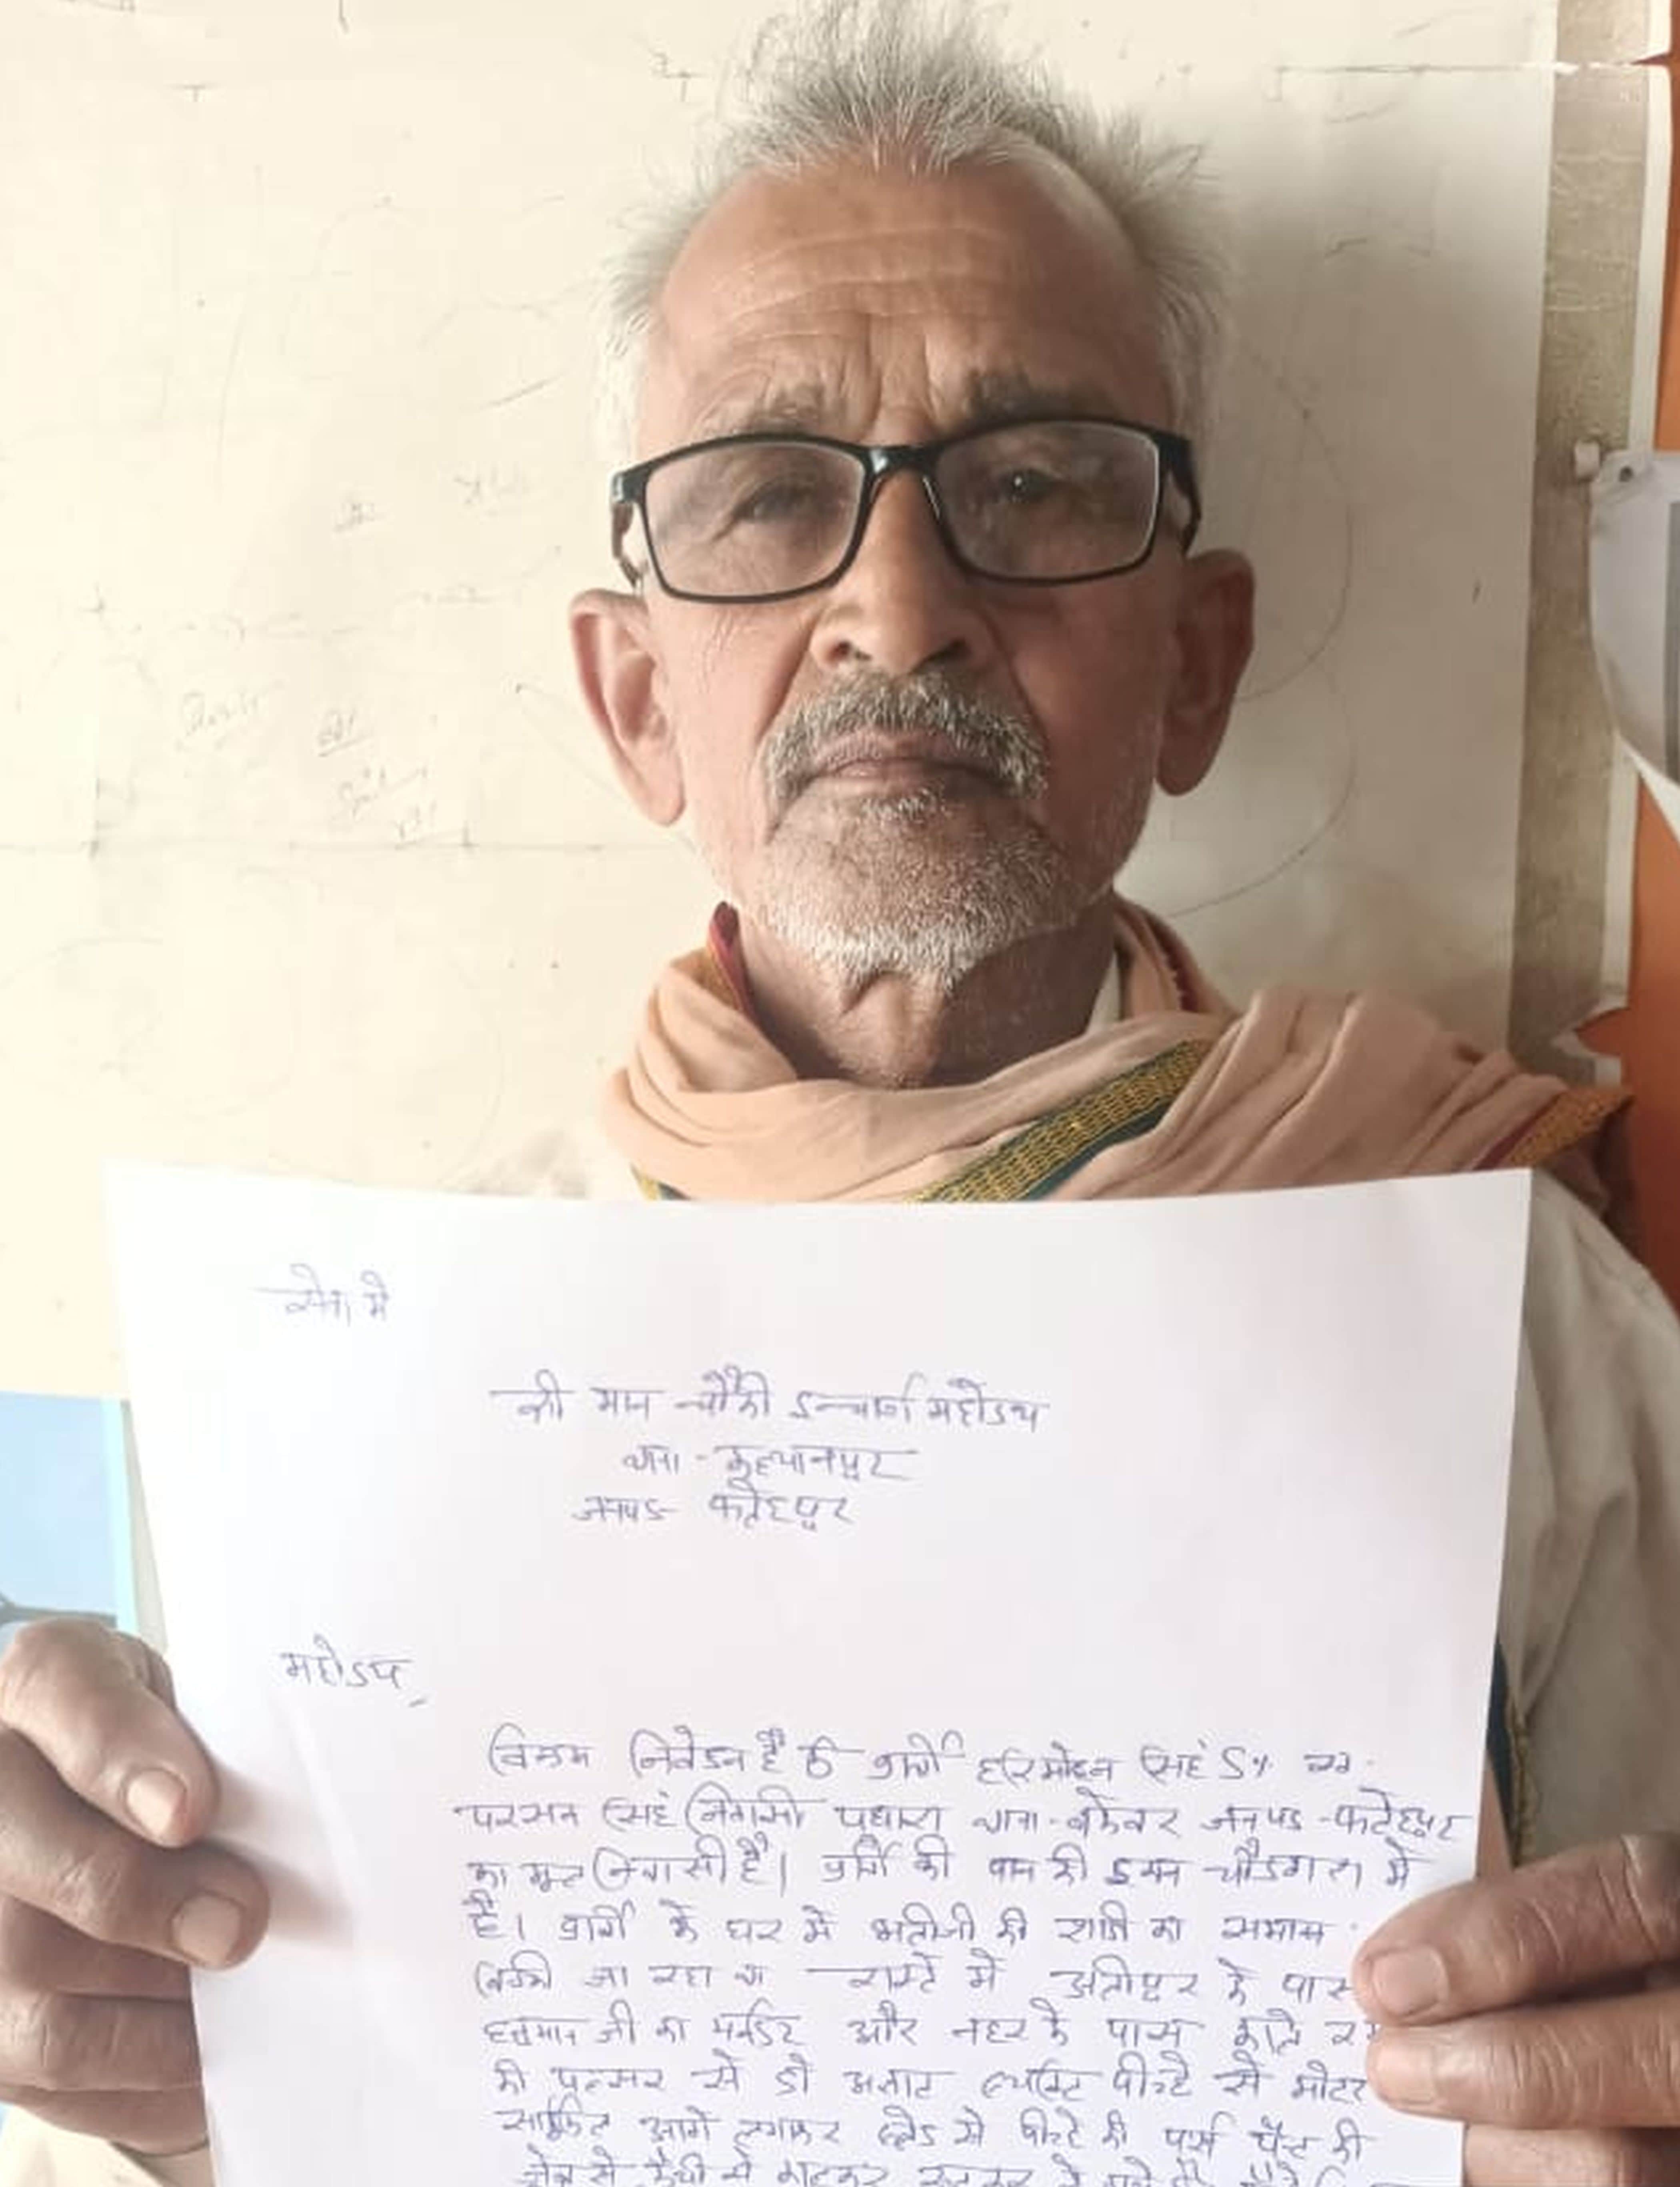 सेवा मे
श्री मान चौकी इन्चार्ज महोदय
थाना - कल्यानपुर
जनपद - फतेहपुर
महोदय,
विनम्र निवेदन है कि प्रार्थी हरिमोहन सिहं S/o स्व.
परसन सिहं निवासी पधारा थाना - बकेवर जनपद - फतेहपुर
का मूल निवासी है। प्रार्थी की पान की दुकान चौडगरा मे
है। प्रार्थी के घर मे भतीजी की शादि का समान
जा रहा था रास्ते मे अलीपुर के पास
हनुमान जी का मन्दिर और नहर के पास काले रग
की पल्सर से दो अज्ञात व्यक्ति पीछे से मोटर
साईकिल आगे लगाकर ब्लेड से पीछे की पर्स पैन्ट की
जेब से कैची से काटकर